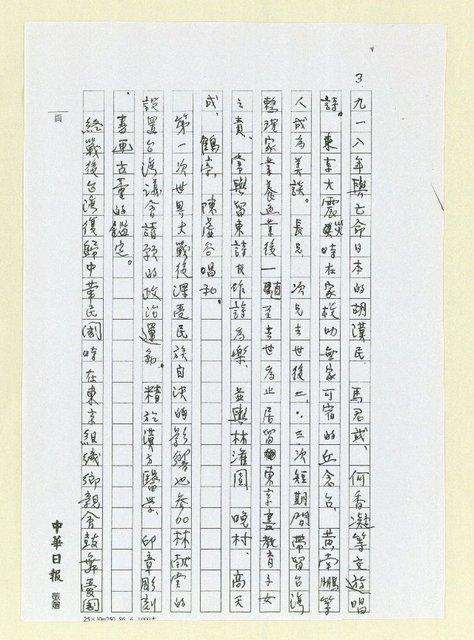 3
九一八年與亡命日本的胡漢民、馬君武、何香凝等交遊唱
詩。東京大震災時在家校助無家可宿的丘念台、黃南鵬等
人成為美談。長兄、次兄去世後二、三次短期間帶留台灣
整理家業養魚業後一直至去世為止居留東京盡教育子女
之責,常與留東詩友作詩為樂,並與林灌園、晚村、高天
成、鶴亭、陳虛谷唱和。
第一次世界大戰後深受民族自決的影響也參加林献堂的
設置台灣議會請願的政治運動。精於漢方醫學、印章彫刻
、書画古董的鑑定。
終戰後台灣復歸中華民國時在東京組織鄉親會鼓舞愛國
頁
中華日報